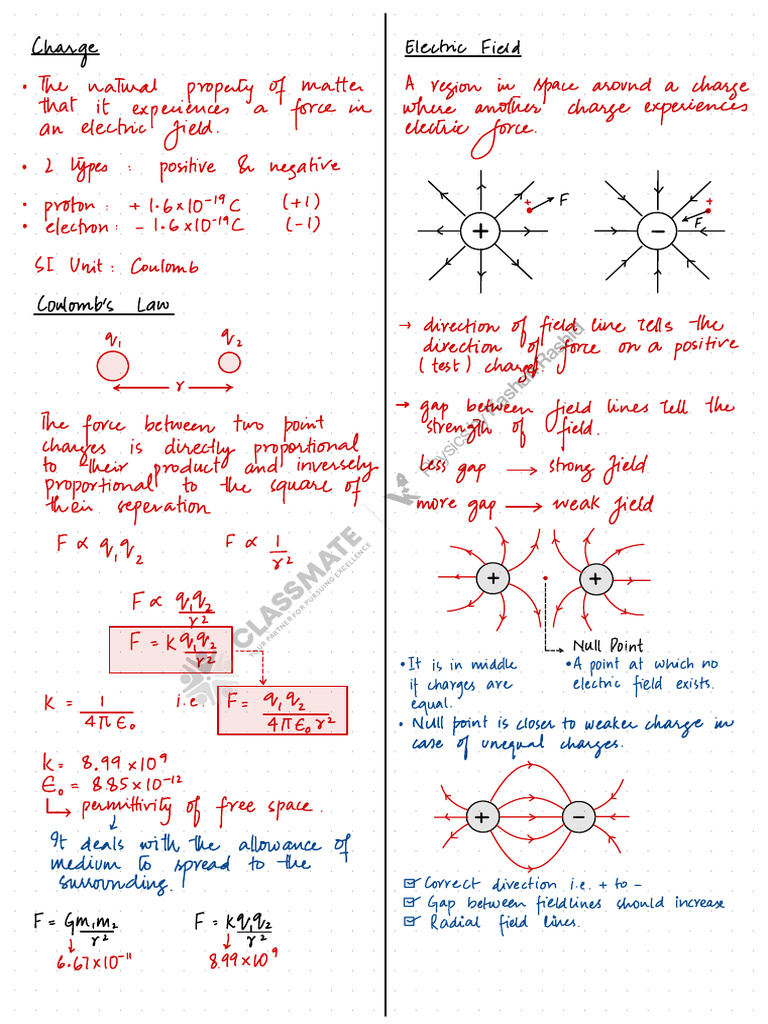 Charge
• The natural property of matter
that it experiences a force in
an electric field.
• 2 types : positive & negative
• proton : + 1.6 × 10⁻¹⁹ C (+1)
• electron : - 1.6 × 10⁻¹⁹ C (-1)
SI Unit : Coulomb
Coulomb's Law
q₁ q₂
r
The force between two point
charges is directly proportional
to their product and inversely
proportional to the square of
their seperation
F ∝ q₁q₂ F ∝ 1/r²
F ∝ q₁q₂/r²
F = K q₁q₂/r²
K = 1/4πϵ₀ i.e. F = q₁q₂/4πϵ₀r²
K = 8.99 × 10⁹
ϵ₀ = 8.85 × 10⁻¹²
↳ permittivity of free space.
It deals with the allowance of
medium to spread to the
surrounding.
F = Gm₁m₂/r² F = Kq₁q₂/r²
6.67×10⁻¹¹ 8.99×10⁹
Electric Field
A region in space around a charge
where another charge experiences
electric force.
+ F +
+ - F
→ direction of field line tells the
direction of force on a positive
(test) charge
→ gap between field lines tell the
strength of field.
Less gap → strong field
more gap → weak field
+ +
Null Point
• It is in middle
if charges are
equal.
• A point at which no
electric field exists.
• Null point is closer to weaker charge in
case of unequal charges.
+ -
☑ Correct direction i.e. + to -
☑ Gap between fieldlines should increase
☑ Radial field lines.
CLASSMATE
YOUR PARTNER FOR PURSUING EXCELLENCE
Rashid